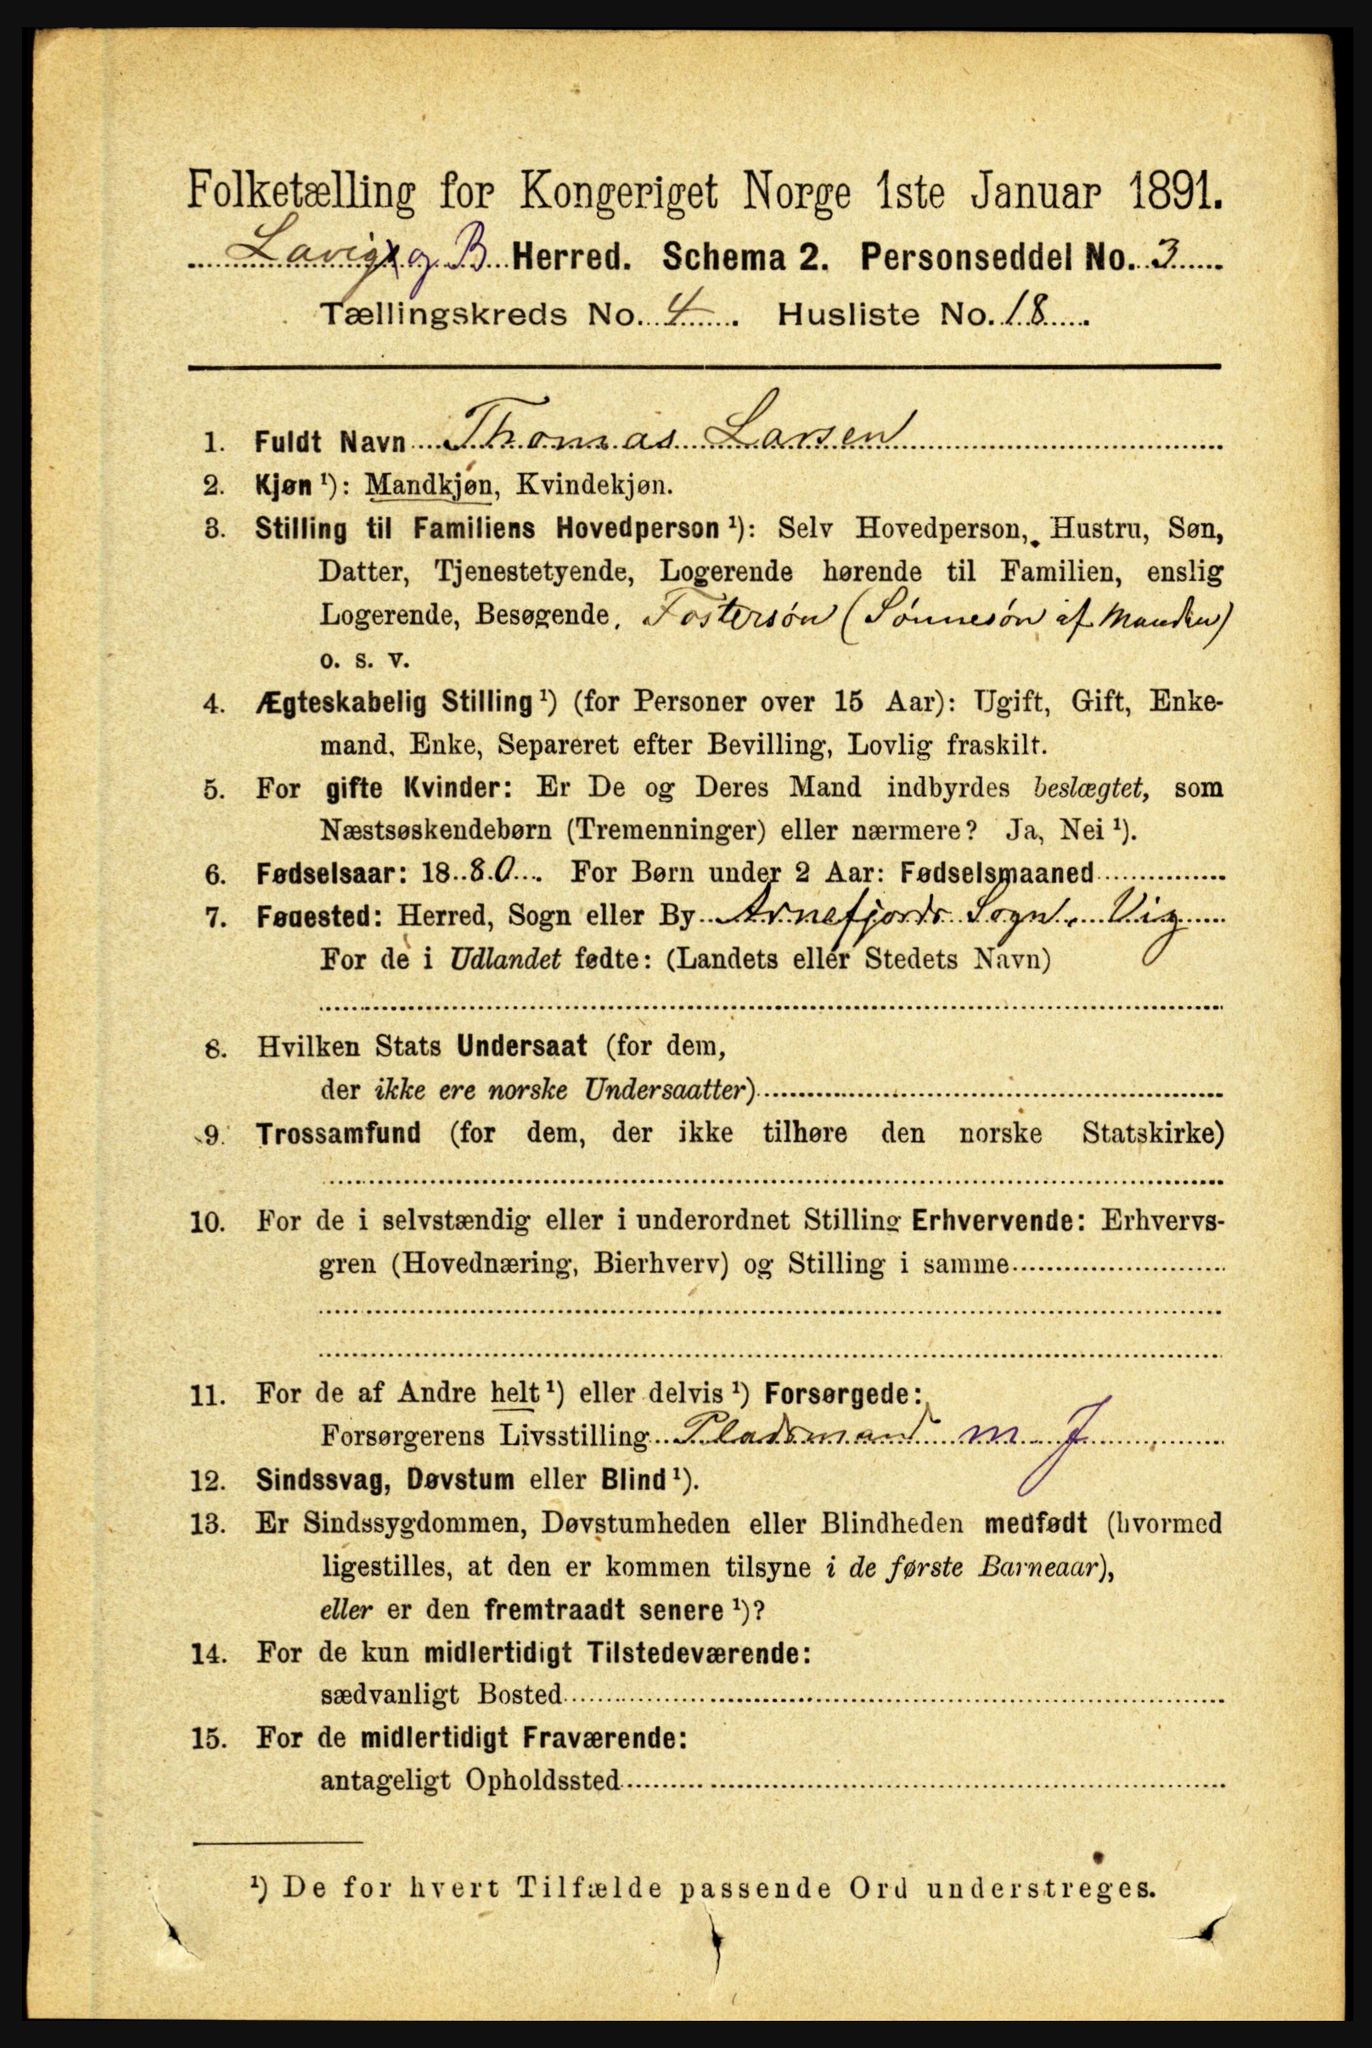 Folketælling for Kongeriget Norge 1ste Januar 1891.
Lavig og B Herred. Schema 2. Personseddel No. 3
Tællingskreds No. 4. Husliste No. 18.
1. Fuldt Navn Thomas Larsen
2. Kjøn ¹): Mandkjøn, Kvindekjøn.
3. Stilling til Familiens Hovedperson ¹): Selv Hovedperson, Hustru, Søn,
Datter, Tjenestetyende, Logerende hørende til Familien, enslig
Logerende, Besøgende, Fostersøn (Sønnesøn af Manden)
o. s. v.
4. Ægteskabelig Stilling ¹) (for Personer over 15 Aar): Ugift, Gift, Enke-
mand, Enke, Separeret efter Bevilling, Lovlig fraskilt.
5. For gifte Kvinder: Er De og Deres Mand indbyrdes beslægtet, som
Næstsøskendebørn (Tremenninger) eller nærmere? Ja, Nei ¹).
6. Fødselsaar: 1880. For Børn under 2 Aar: Fødselsmaaned
7. Fødested: Herred, Sogn eller By Arnefjords Sogn, Vig
For de i Udlandet fødte: (Landets eller Stedets Navn)
8. Hvilken Stats Undersaat (for dem,
der ikke ere norske Undersaatter)
9. Trossamfund (for dem, der ikke tilhøre den norske Statskirke)
10. For de i selvstændig eller i underordnet Stilling Erhvervende: Erhvervs-
gren (Hovednæring, Bierhverv) og Stilling i samme
11. For de af Andre helt ¹) eller delvis ¹) Forsørgede:
Forsørgerens Livsstilling Pladsmand m J
12. Sindssvag, Døvstum eller Blind ¹).
13. Er Sindssygdommen, Døvstumheden eller Blindheden medfødt (hvormed
ligestilles, at den er kommen tilsyne i de første Barneaar),
eller er den fremtraadt senere ¹)?
14. For de kun midlertidigt Tilstedeværende:
sædvanligt Bosted
15. For de midlertidigt Fraværende:
antageligt Opholdssted
¹) De for hvert Tilfælde passende Ord understreges.